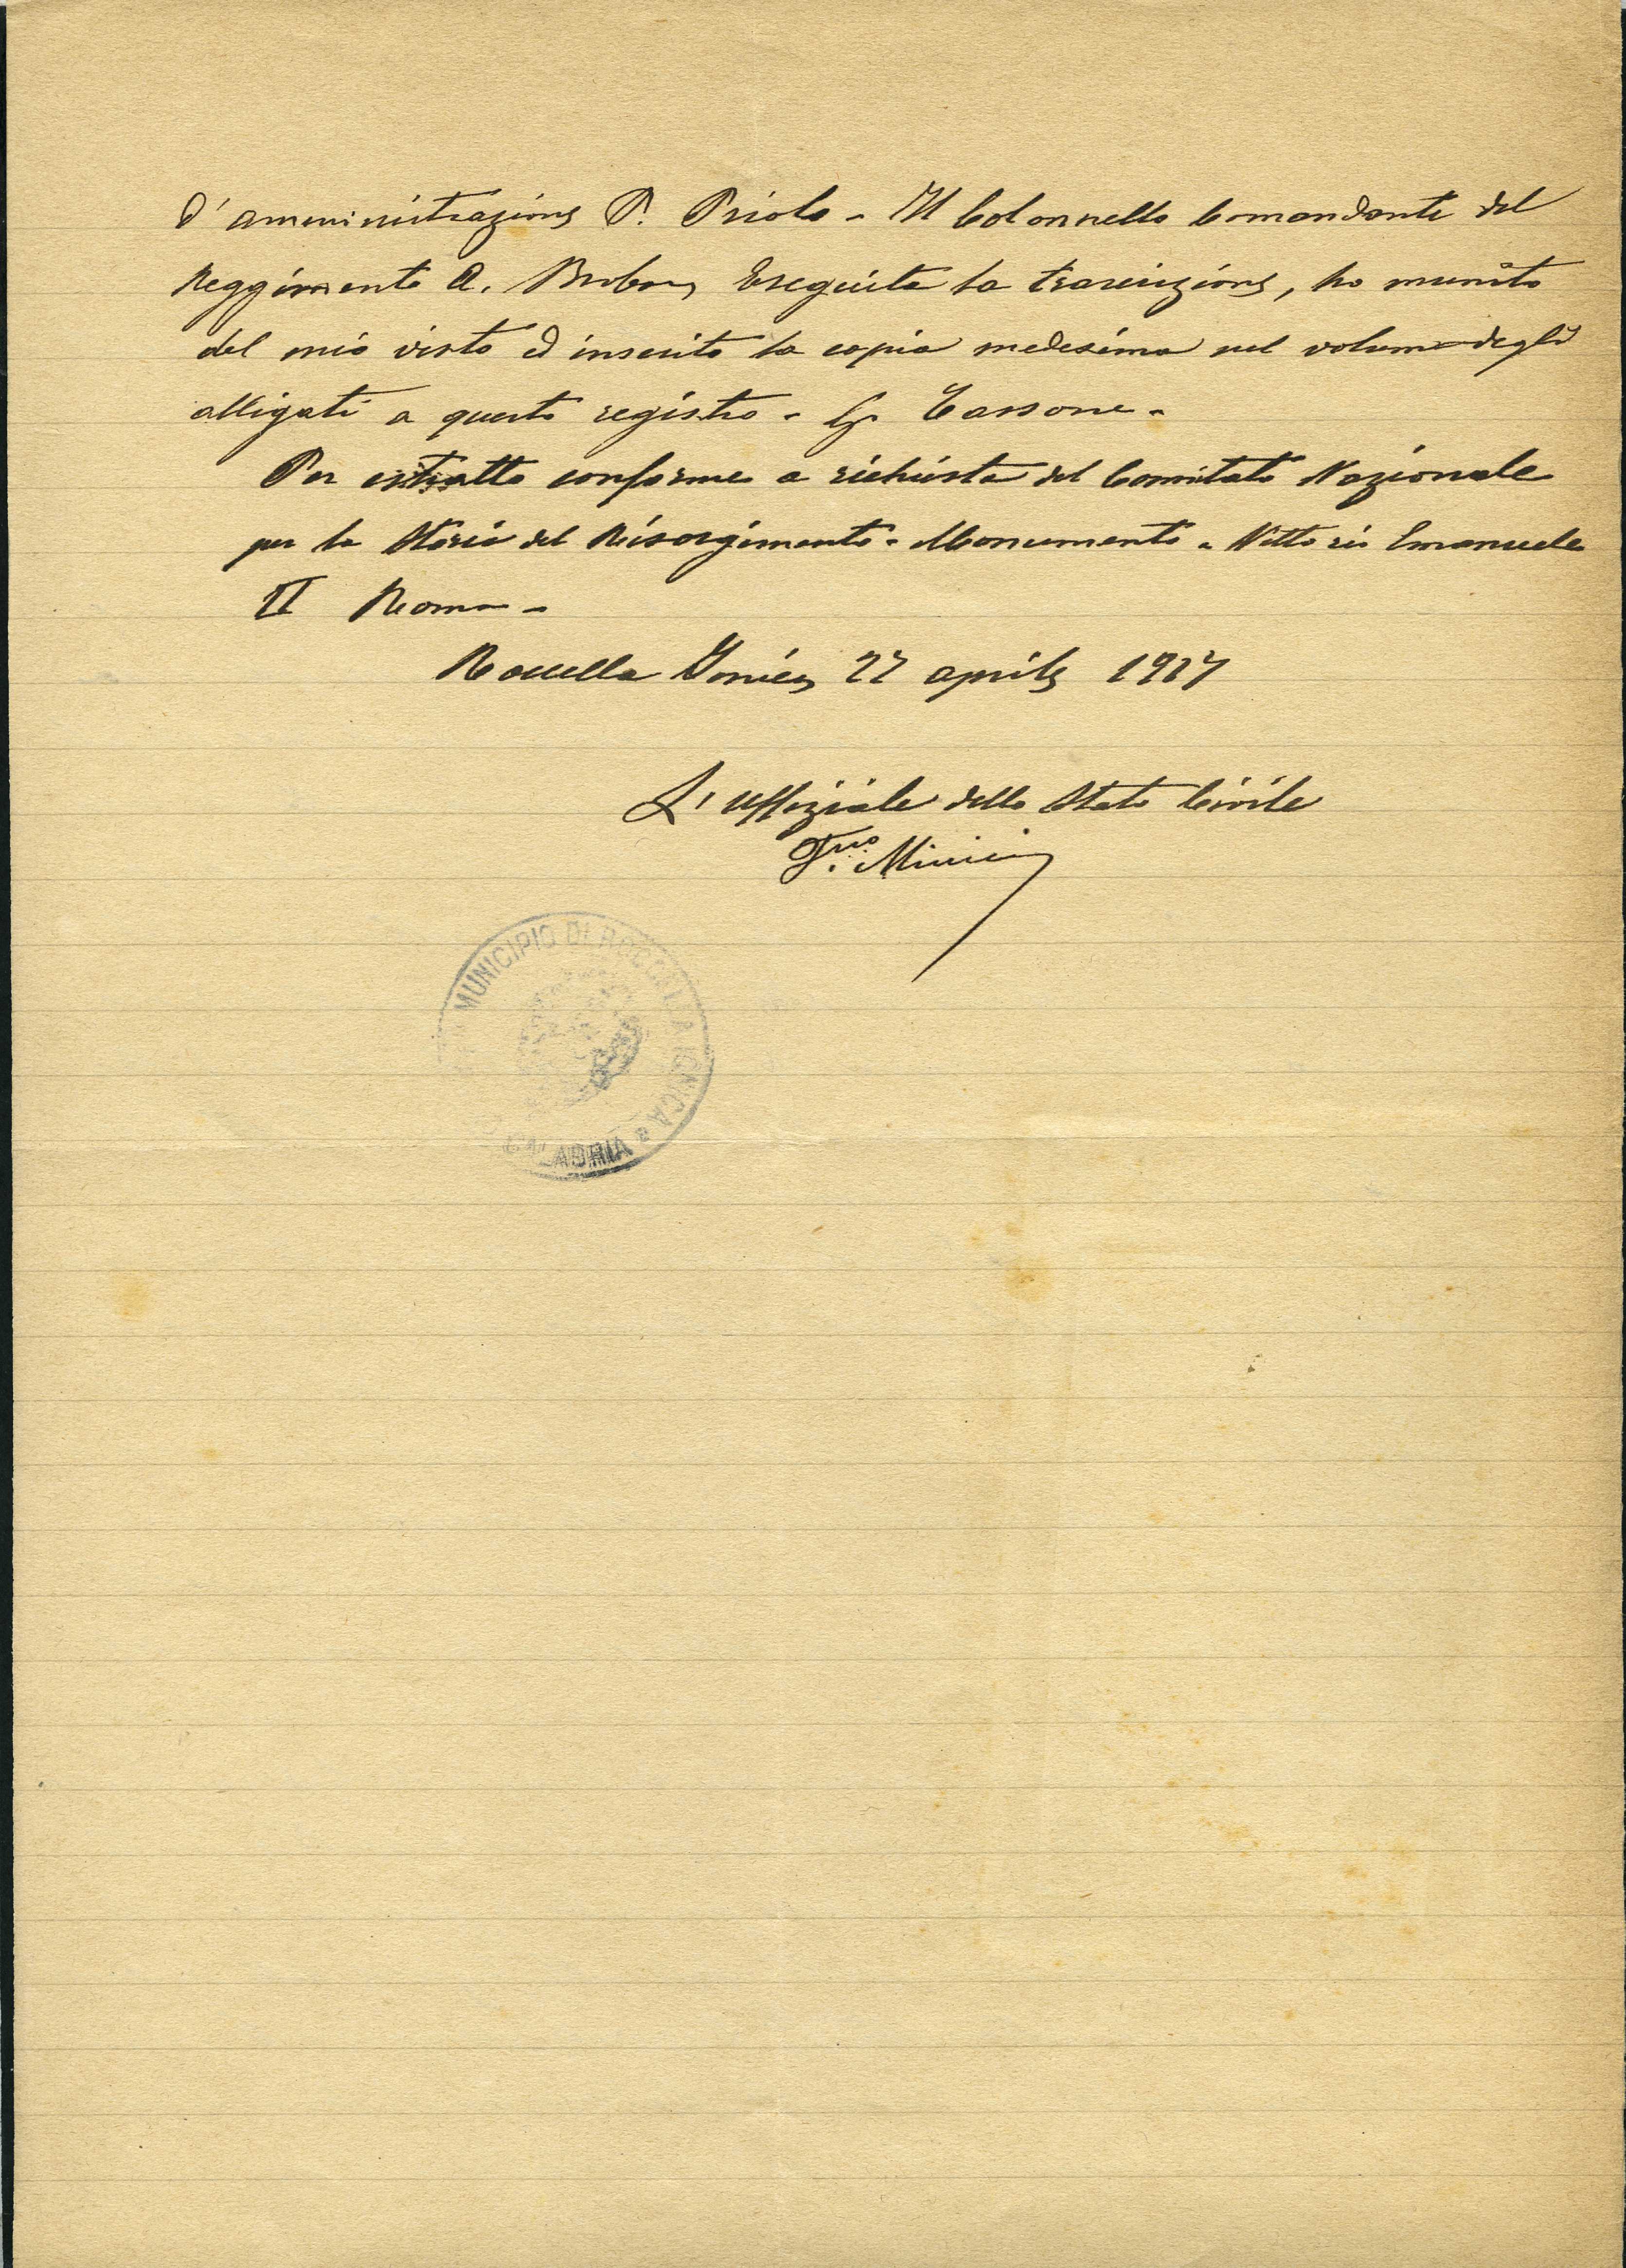 d'amministrazione P. Priolo - Il Colonnello Comandante del
Reggimento A. Eseguita la trascrizione, ho munito
del mio visto ed inserito la copia medesima nel volume degli
alligati a questo registro - G. Cassone -
Per estratto conforme a richiesta del Comitato Nazionale
per la Storia del Risorgimento - Monumento a Vittorio Emanuele
II Roma -
Roccella Ionica 22 aprile 1917
L'uffiziale dello Stato Civile
MUNICIPIO DI ROCCELLA IONICA
CALABRIA